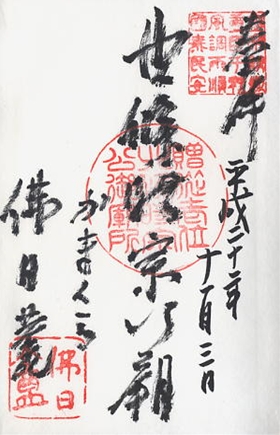 奉拝
平成二十二年
十一月三日
風調雨順
國泰民安
北條時宗公廟
公御廟所
かまくら
佛日庵
佛日